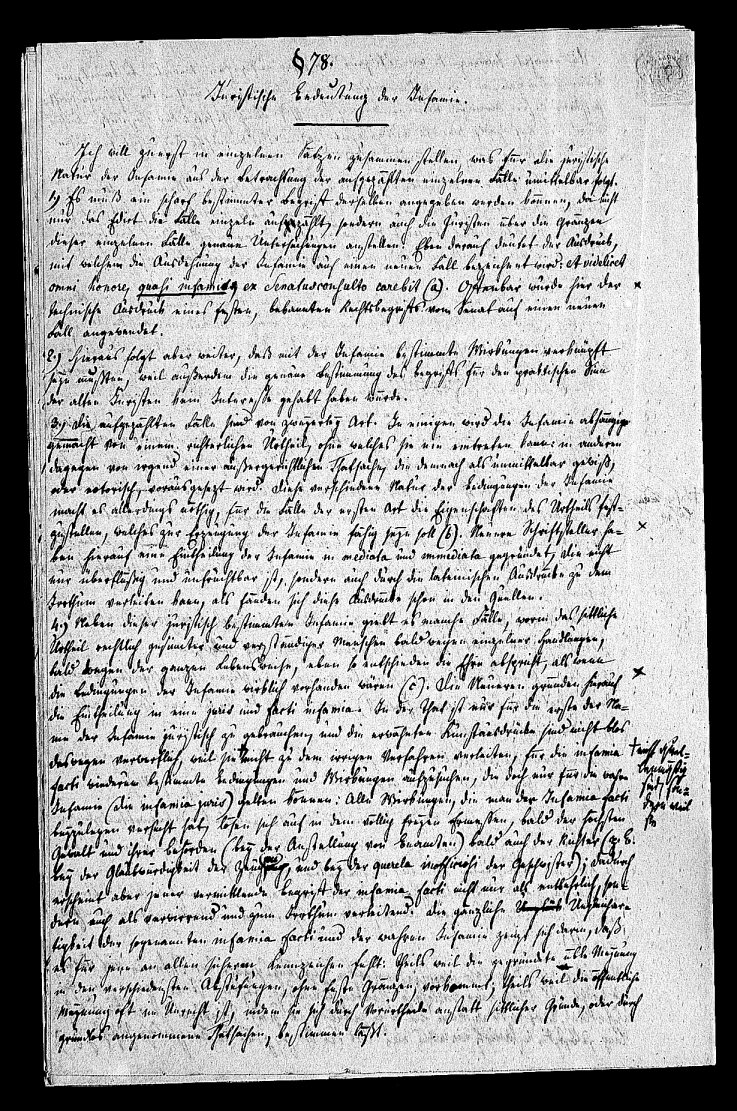 § 78.
Juristische Bedeutung der Infamie.
Ich will zuerst in einzelnen Sätzen zusammen stellen, was für die juristische
Natur der Infamie aus der Betrachtung der aufgezählten einzelnen Fälle unmittelbar folgt.
1.) Es muß ein scharf bestimmter Begriff derselben angegeben werden können, da nicht
nur das Edict die Fälle einzeln aufgezählt, sondern auch die Juristen über die Gränzen
dieser einzelnen Fälle genaue Untersuchungen anstellen. Eben darauf deutet der Ausdruck,
mit welchem die Ausdehnung der Infamie auf einen neuen Fall bezeichnet wird: et videlicet
omni honore, quasi infamis, ex Senatusconsulto carebit (a). Offenbar wurde hier der
technische Ausdruck eines festen, bekannten Rechtsbegriffs vom Senat auf einen neuen
Fall angewendet.
2.) Hieraus folgt aber weiter, daß mit der Infamie bestimmte Wirkungen verknüpft
seyn mußten, weil außerdem die genaue Bestimmung des Begriffs für den praktischen Sinn
der alten Juristen kein Interesse gehabt haben würde.
3.) Die aufgezählten Fälle sind von zweyerley Art. In einigen wird die Infamie abhängig
gemacht von einem richterlichen Urtheil, ohne welches sie nie eintreten kann: in anderen
dagegen von irgend einer außergerichtlichen Thatsache, die demnach als unmittelbar gewiß,
oder notorisch, vorausgesetzt wird. Diese verschiedene Natur der Bedingungen der Infamie
macht es allerdings nöthig, für die Fälle der ersten Art die Eigenschaften des Urtheils fest-
zustellen, welches zur Erzeugung der Infamie fähig seyn soll (b). Neuere Schriftsteller ha-
ben hierauf eine Eintheilung der Infamie in mediata und immediata gegründet, die nicht
nur überflüssig und unfruchtbar ist, sondern auch durch die lateinischen Ausdrücke zu dem
Irrthum verleiten kann, als fänden sich diese Ausdrücke schon in den Quellen.
4.) Neben dieser juristisch bestimmten Infamie giebt es manche Fälle, worin das sittliche
Urtheil rechtlich gesinnter und verständiger Menschen bald wegen einzelner Handlungen,
bald wegen der ganzen Lebensweise, eben so entschieden die Ehre abspricht, als wenn
die Bedingungen der Infamie wirklich vorhanden wären (c). Die Neueren gründen hierauf
die Eintheilung in eine juris und facti infamia. In der That ist nur für die erste der Na-
me der Infamie juristisch zu gebrauchen, und die erwähnten Kunstausdrücke sind nicht blos
deswegen verwerflich, weil sie leicht zu dem irrigen Verfahren verleiten, für die infamia
facti wiederum bestimmte Bedingungen und Wirkungen aufzusuchen, die doch nur für die wahre
Infamie (die infamia juris) gelten können. Alle Wirkungen, die man der Infamia facti
beyzulegen versucht hat, lösen sich auf in dem völlig freyen Ermessen, bald der höchsten
Gewalt und ihrer Behörden (bey der Anstellung von Beamten) bald auch der Richter (z. B.
bey der Glaubwürdigkeit der Zeugen, und bey der querela inofficiosi der Geschwister); dadurch
erscheint aber jener vermittelnde Begriff der infamia facti nicht nur als entbehrlich, son-
dern auch als verwirrend und zum Irrthum verleitend. Die gänzliche Ungleichar-
tigkeit der sogenannten infamia facti und der wahren Infamie zeigt sich darin, daß
es für jene an allen sicheren Kennzeichen fehlt: theils weil die gegründete üble Meynung
in den verschiedensten Abstufungen, ohne feste Gränzen, vorkommt; theils weil die öffentliche
Meynung oft im Unrecht ist, indem sie sich durch Vorurtheile anstatt sittlicher Gründe, oder durch
grundlos angenommene Thatsachen, bestimmen läßt.
sind, son-
dern weil
sie